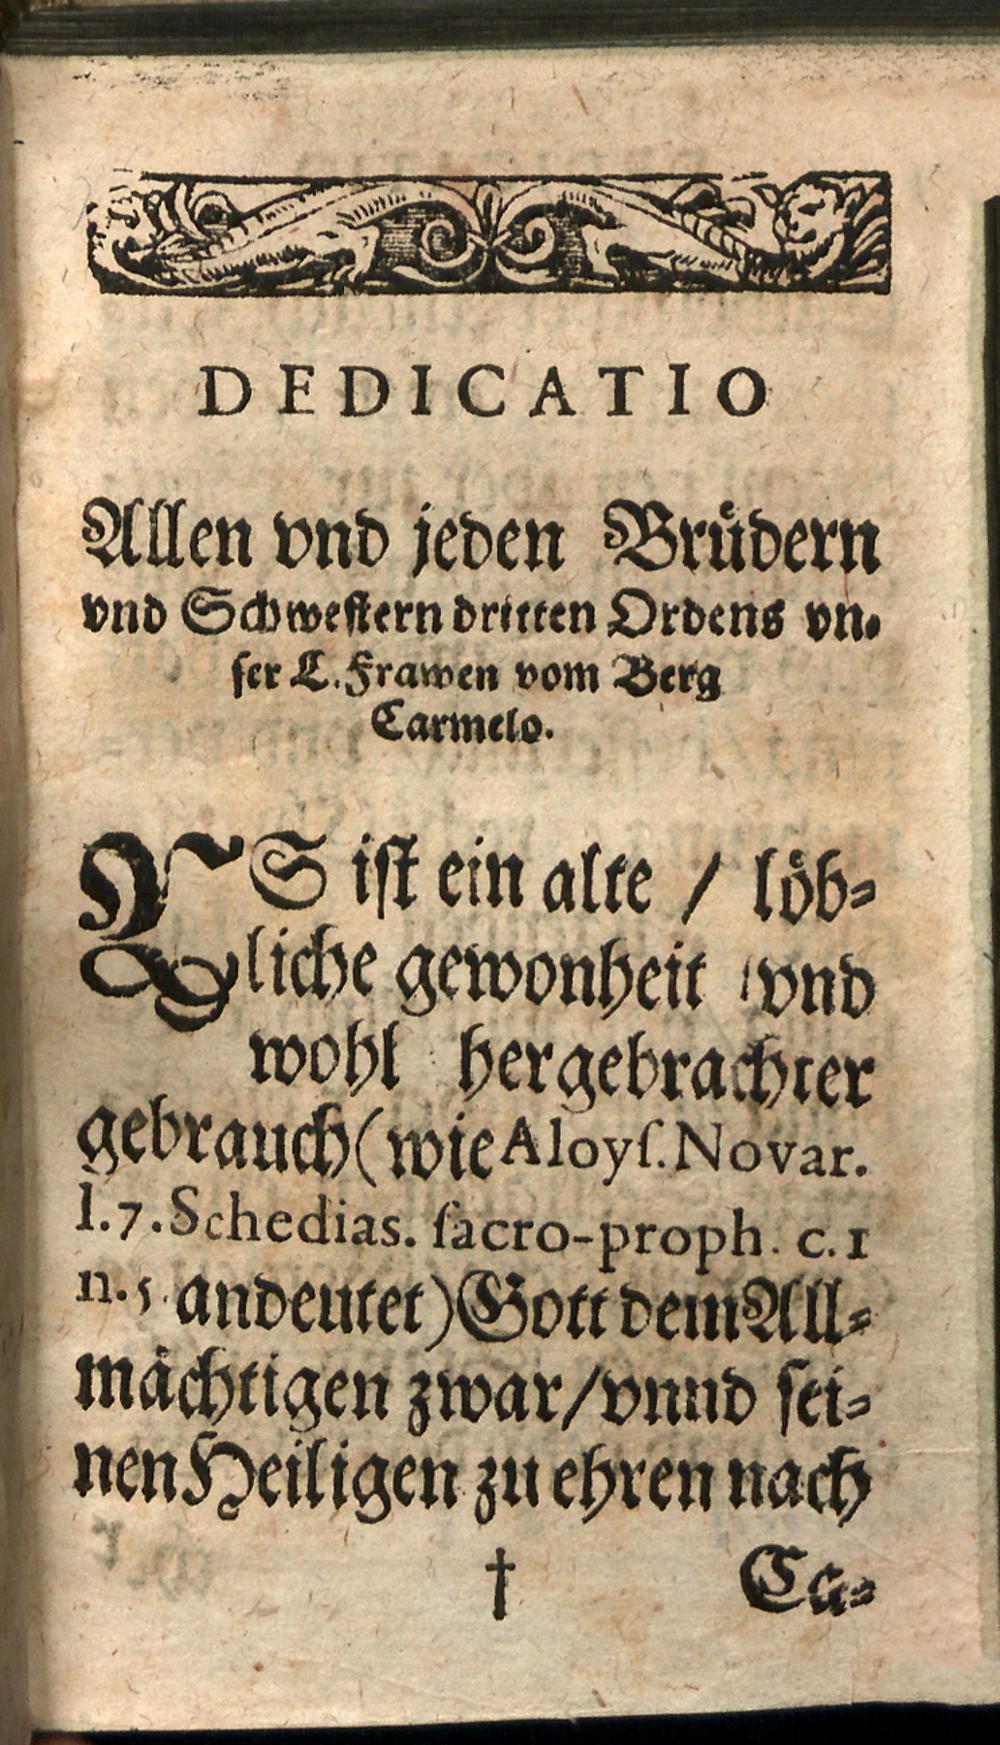 DEDICATIO
Allen vnd jeden Brüdern
vnd Schwestern dritten Ordens vn-
ser L. Frawen vom Berg
Carmelo.
ES ist ein alte / löb-
liche gewonheit / vnd
wohl hergebrachter
gebrauch (wie Aloyſ. Novar.
l. 7. Schedias. ſacro-proph. c. 1
n. 5 andeutet) Gott dem All-
mächtigen zwar / vnnd ſei-
nen Heiligen zu ehren nach
† Ca-